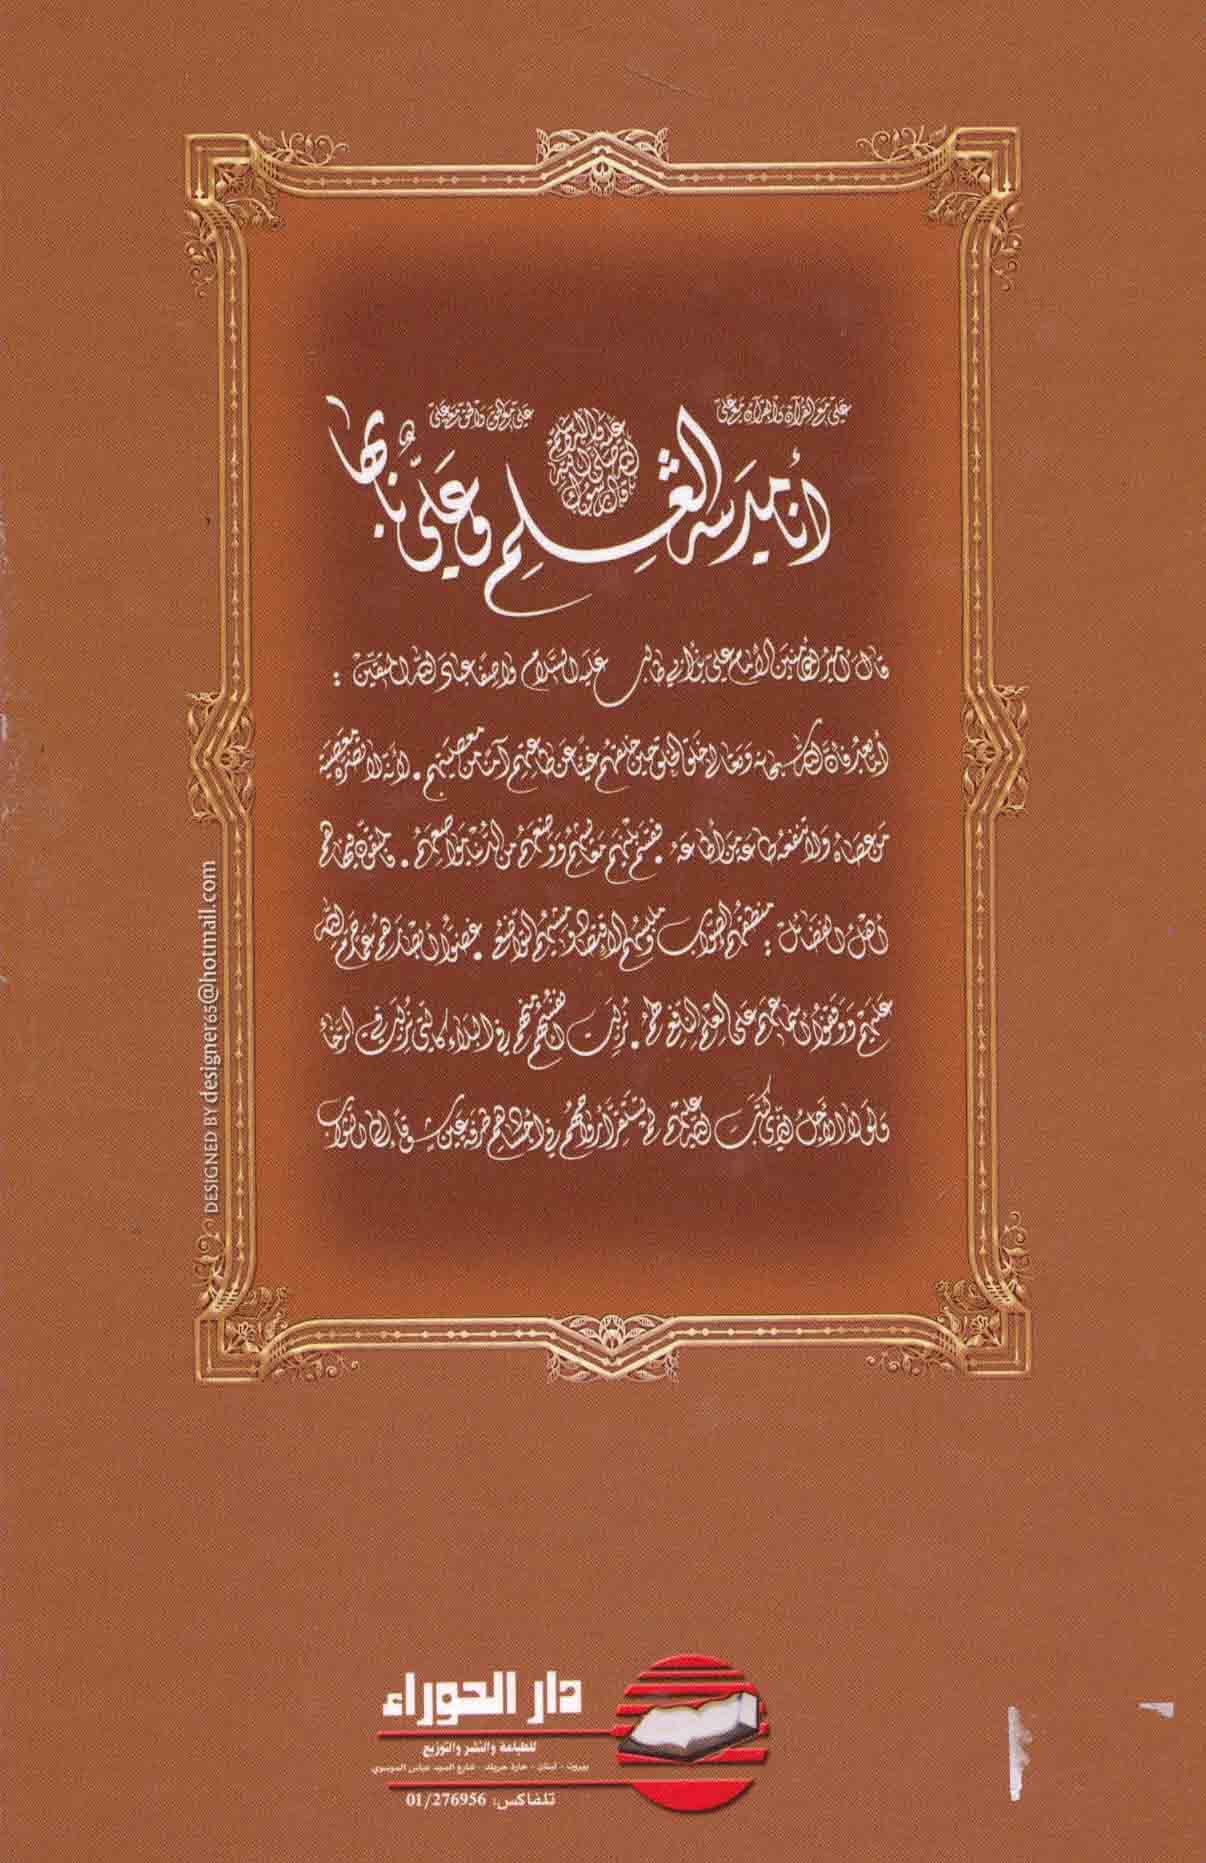 علي مع القرآن والقرآن مع علي
علي مع الحق والحق مع علي
قال رسول الله صلى الله عليه وآله وسلم
أنا مدينة العلم وعلي بابها
قال أمير المؤمنين الإمام علي بن أبي طالب عليه السلام واصفا عباد الله المتقين :
أما بعد فإن الله سبحانه وتعالى خلق الخلق حين خلقهم غنيا عن طاعتهم آمنا من معصيتهم . لأنه لا تضره معصية
من عصاه ولا تنفعه طاعة من أطاعه . فقسم بينهم معايشهم ووضعهم من الدنيا مواضعهم . فالمتقون فيها هم
أهل الفضائل : منطقهم الصواب وملبسهم الاقتصاد ومشيهم التواضع . غضوا أبصارهم عما حرم الله
عليهم ووقفوا أسماعهم على العلم النافع لهم . نزلت أنفسهم منهم في البلاء كالتي نزلت في الرخاء
ولولا الأجل الذي كتب الله عليهم لم تستقر أرواحهم في أجسادهم طرفة عين شوقا إلى الثواب
DESIGNED BY designer65@hotmail.com
دار الحوراء
للطباعة والنشر والتوزيع
بيروت - لبنان - حارة حريك - شارع السيد عباس الموسوي
تلفاكس: 01/276956